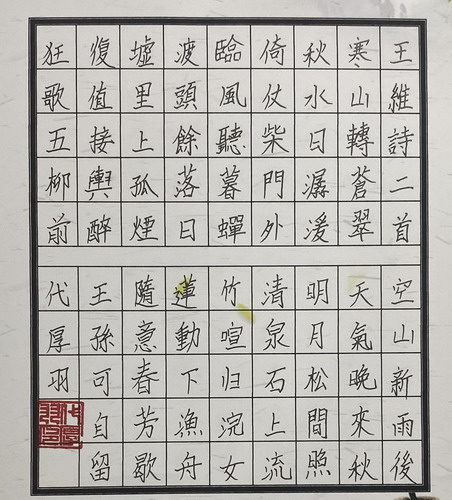 王維詩二首
寒山轉蒼翠
秋水日潺湲
倚仗柴門外
臨風聽暮蟬
渡頭餘落日
墟里上孤煙
復值接輿醉
狂歌五柳前
空山新雨後
天氣晚來秋
明月松間照
清泉石上流
竹喧归浣女
蓮動下漁舟
隨意春芳歇
王孫可自留
代厚羽